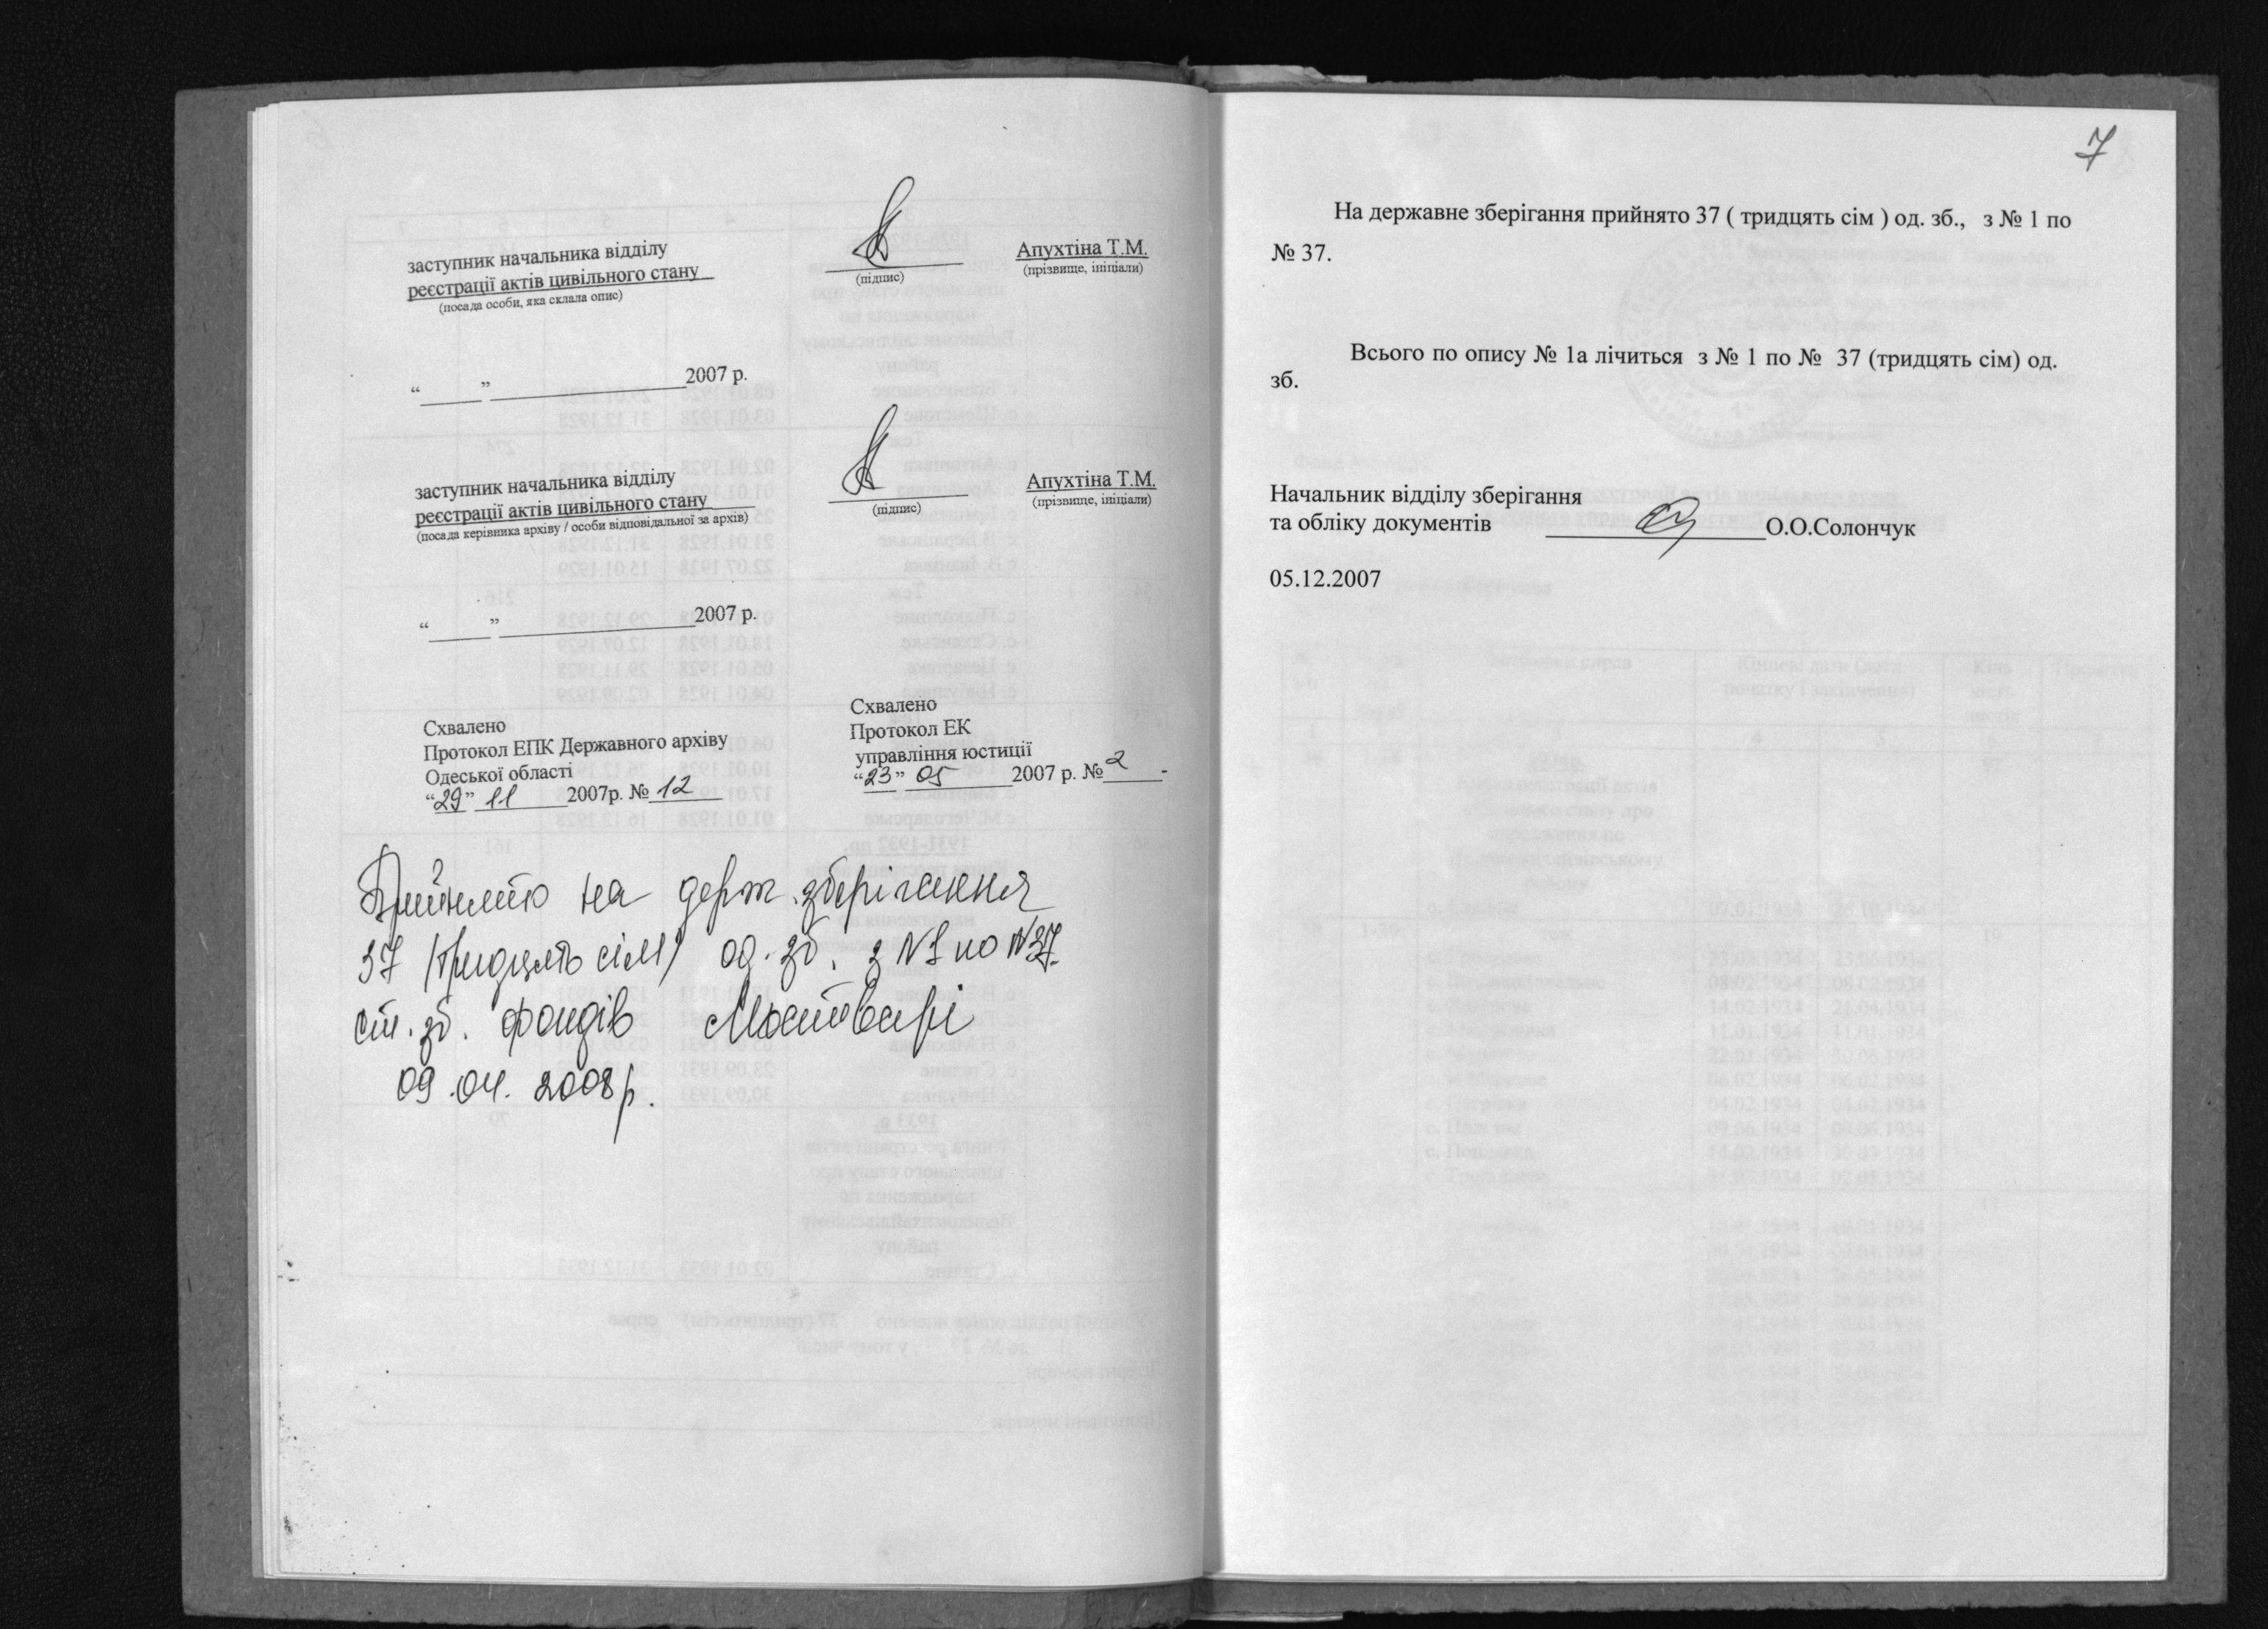 заступник начальника відділу
реєстрації актів цивільного стану
(посада особи, яка склала опис)
(підпис)
Апухтіна Т.М.
(прізвище, ініціали)
“______” ____________________2007 р.
заступник начальника відділу
реєстрації актів цивільного стану
(посада керівника архіву / особи відповідальної за архів)
(підпис)
Апухтіна Т.М.
(прізвище, ініціали)
“______” ____________________2007 р.
Схвалено
Протокол ЕПК Державного архіву
Одеської області
“29” 11 2007р. № 12
Схвалено
Протокол ЕК
управління юстиції
“23” 05 2007 р. № 2
Прийнято на держ. зберігання
37 (тридцять сім) од. зб. з №1 по №37.
ст. зб. фондів
09.04.2008р.
7
На державне зберігання прийнято 37 ( тридцять сім ) од. зб., з № 1 по
№ 37.
Всього по опису № 1а лічиться з № 1 по № 37 (тридцять сім) од.
зб.
Начальник відділу зберігання
та обліку документів ____________________О.О.Солончук
05.12.2007